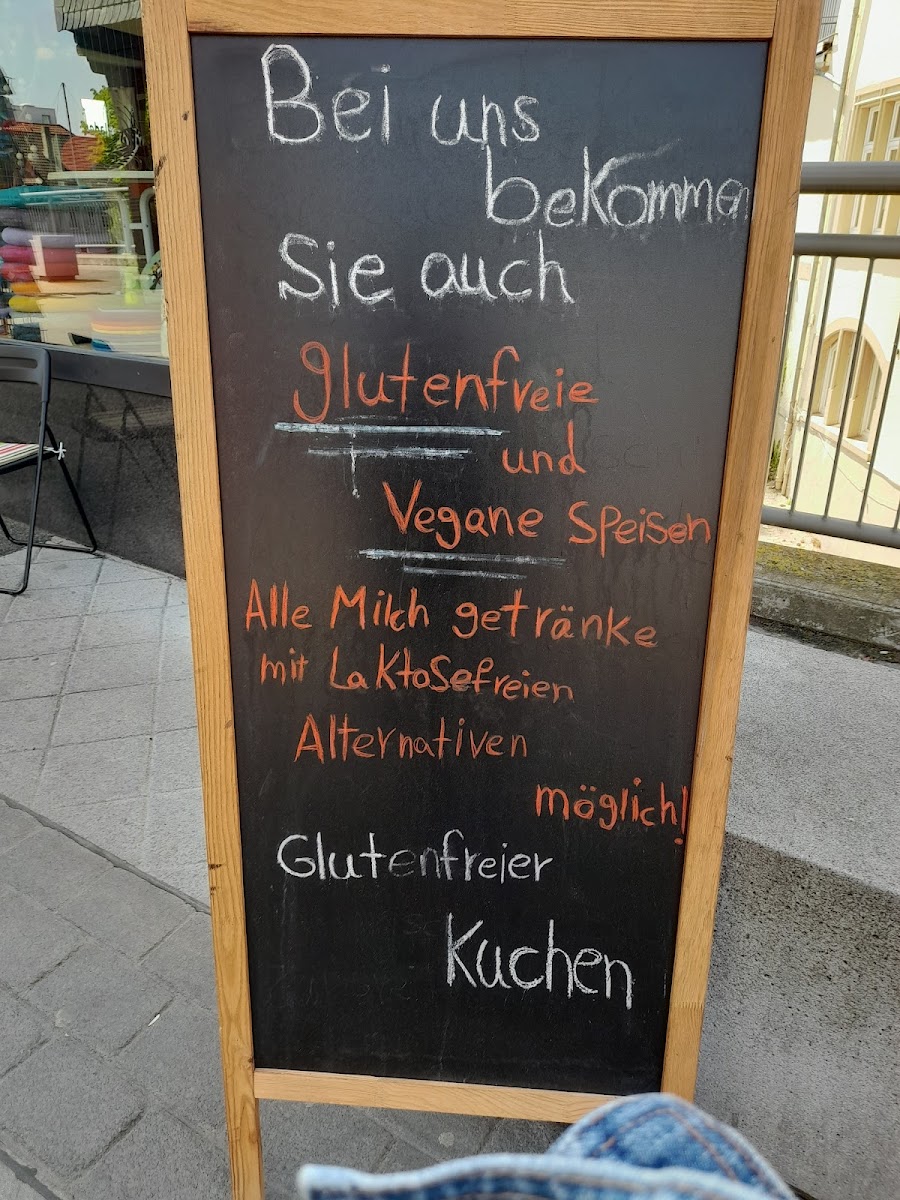 Bei uns
bekommen
Sie auch
glutenfreie
und
Vegane Speisen
Alle Milch getränke
mit Laktosefreien
Alternativen
möglich!
Glutenfreier
Kuchen